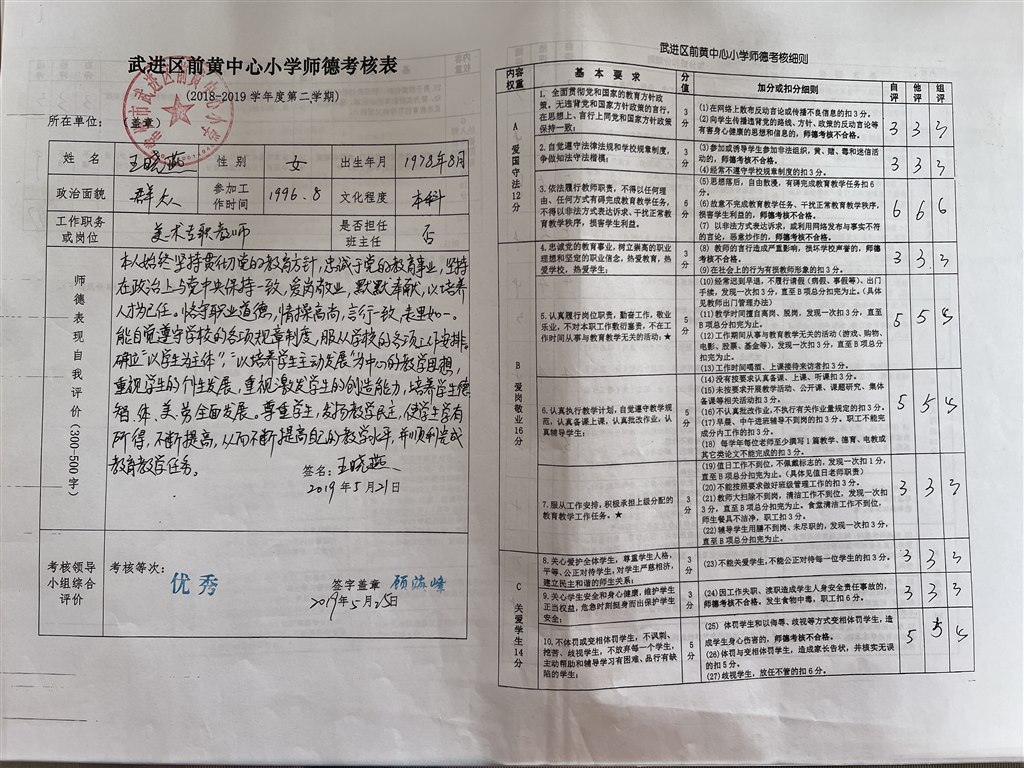 武进区前黄中心小学师德考核表
(2018-2019 学年度第二学期)
所在单位: (盖章)
姓 名 王晓燕 性 别 女 出生年月 1978年8月
政治面貌 群众 参加工作时间 1996.8 文化程度 本科
工作职务或岗位 美术专职教师 是否担任班主任 否
师德表现自我评价(300-500字)
本人始终坚持贯彻党的教育方针,忠诚于党的教育事业,坚持
在政治上与党中央保持一致,爱岗敬业,默默奉献,以培养
人才为己任。恪守职业道德,情操高尚,言行一致,表里如一。
能自觉遵守学校的各项规章制度,服从学校的各项工作安排。
确立“以学生为主体”,“以培养学生主动发展”为中心的教学思想,
重视学生的个性发展,重视激发学生的创造能力,培养学生德、
智、体、美、劳全面发展。尊重学生,发扬教学民主,使学生学有
所得,不断提高,从而不断提高自己的教学水平,并顺利完成
教育教学任务。
签名:王晓燕
2019年5月21日
考核领导小组综合评价
考核等次:
优秀
签字盖章
2019年5月25日
武进区前黄中心小学师德考核细则
内容权重 基 本 要 求 分值 加分或扣分细则 自评 他评 组评
A 爱国守法12分
1、全面贯彻党和国家的教育方针政
策。无违背党和国家方针政策的言行,
在思想上、言行上同党和国家方针政策
保持一致;
3分
(1)在网络上散布反动言论或传播不良信息的扣3分。
(2)向学生传播违背党的路线、方针、政策的反动言论等
有害身心健康的思想和信息的,师德考核不合格。
3 3 3
2、自觉遵守法律法规和学校规章制度,
争做知法守法楷模;
3分
(3)参加或诱导学生参加非法组织,黄、赌、毒和迷信活
动的,师德考核不合格。
(4)经常不遵守学校规章制度的扣3分。
3 3 3
3、依法履行教师职责,不得以任何理
由、任何方式有碍完成教育教学任务,
不得以非法方式表达诉求、干扰正常教
育教学秩序,损害学生利益。
6分
(5)思想落后,自由散漫,有碍完成教育教学任务扣6
分。
(6)故意不完成教育教学任务、干扰正常教育教学秩序,
损害学生利益的,师德考核不合格。
(7)以非法方式表达诉求,或利用网络发布与事实不符
的言论,恶意炒作的,师德考核不合格。
6 6 6
B 爱岗敬业16分
4、忠诚党的教育事业,树立崇高的职业
理想和坚定的职业信念,热爱教育,热
爱学校,热爱学生;
3分
(8)教师的言行造成严重影响,损坏学校声誉的,师德
考核不合格。
(9)在社会上的行为有损教师形象的扣3分。
3 3 3
5、认真履行岗位职责,勤奋工作,敬业
乐业,不对本职工作敷衍塞责,不在工
作时间从事与教育教学无关的活动;★
5分
(10)经常迟到早退,不履行请假(病假、事假等)、出门
手续,发现一次扣3分,直至B项总分扣完为止。(具体
见教师出门管理办法)
(11)教学时间擅自离岗、脱岗,发现一次扣3分,直至
B项总分扣完为止。
(12)工作期间从事与教育教学无关的活动(游戏、购物、
电影、股票、基金等),发现一次扣3分,直至B项总分
扣完为止。
(13)工作时间喝酒、上课接待来访者扣3分。
5 5 5
6、认真执行教学计划,自觉遵守教学规
范,认真备课上课,认真批改作业,认
真辅导学生;
5分
(14)没有按要求认真备课、上课、听课扣3分。
(15)未按要求开展教学活动、公开课、课题研究、集体
备课等相关活动扣3分。
(16)不认真批改作业,不执行有关作业量规定的扣3分。
(17)早晨、中午进班辅导不到岗的扣3分。职工不能完
成分内工作的扣3分。
(18)每学年每位老师至少撰写1篇教学、德育、电教或
其它类论文不能完成的扣3分。
5 5 5
7、服从工作安排,积极承担上级分配的
教育教学工作任务。★
3分
(19)值日工作不到位,不佩戴标志的,发现一次扣1分,
直至B项总分扣完为止。(具体见值日老师职责)
(20)不能按照要求做好班级管理工作的扣3分。
(21)教师大扫除不到岗,清洁工作不到位,发现一次扣
3分,直至B项总分扣完为止。食堂清洁工作不到位,
师生餐具不洁净,职工扣3分。
(22)辅导学生用膳不到岗、未尽职的,发现一次扣3分,
直至B项总分扣完为止。
3 3 3
C 关爱学生14分
8、关心爱护全体学生,尊重学生人格,
平等、公正对待学生,对学生严慈相济,
建立民主和谐的师生关系;
3分
(23)不能关爱学生,不能公正对待每一位学生的扣3分。
3 3 3
9、关心学生安全和身心健康,维护学生
正当权益,危急时刻挺身而出保护学生
安全;
3分
(24)因工作失职、渎职造成学生人身安全责任事故的,
师德考核不合格。发生食物中毒,职工扣6分。
3 3 3
10、不体罚或变相体罚学生,不讽刺、
挖苦、歧视学生,不放弃每一个学生,
主动帮助和辅导学习有困难、品行有缺
陷的学生;
5分
(25)体罚学生和以侮辱、歧视等方式变相体罚学生,造
成学生身心伤害的,师德考核不合格。
(26)体罚与变相体罚学生,造成家长告状,并核实无误
的扣5分。
(27)歧视学生,放任不管的扣6分。
5 5 5